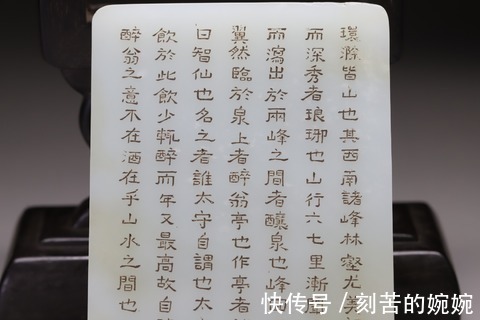 環滁皆山也其西南諸峰林壑尤
而深秀者琅琊也山行六七里漸
而瀉出於兩峰之間者釀泉也峰
翼然臨於泉上者醉翁亭也作亭者
曰智仙也名之者誰太守自謂也太
飲於此飲少輒醉而年又最高故自
醉翁之意不在酒在乎山水之間也
快传号 / 刻苦的婉婉